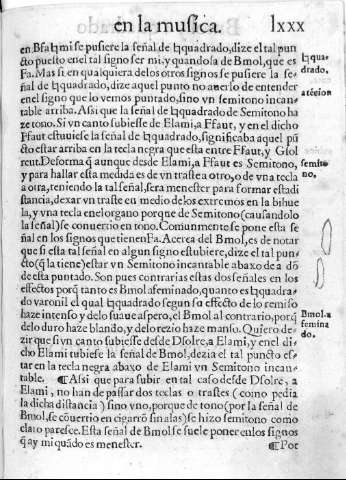 en la musica.
lxxx
en Bfa♮mi se pusiere la señal de ♮quadrado, dize el tal pun
cto puesto en el tal signo ser mi, y quando sa de Bmol, que es
Fa. Mas si en qualquiera delos otros signos se pusiere la se-
ñal de ♮quadrado, dize aquel punto no auer lo de entender
en el signo que lo vemos puntado, sino vn semitono incan-
table arriba. Assi que la señal de ♮quadrado de Semitono ha
ze tono. Si vn canto subiesse de Elami, a Ffaut, y en el dicho
Ffaut estuuiesse la señal de ♮quadrado, significaba aquel pũ
cto estar arriba en la tecla negra que esta entre Ffaut, y Gsol
reut. De forma q̃ aunque desde Elami, a Ffaut es Semitono,
y para hallar esta medida es de vn traste a otro, o de vna tecla
a otra, teniendo la tal señal, sera menester para formar esta di
stancia, dexar vn traste en medio de los extremos en la bihue
la, y vna tecla en el organo porque de Semitono (causandolo
la señal) se conuertio en tono. Comunmente se pone esta se
ñal en los signos que tienen Fa. Acerca del Bmol, es de notar
que si esta tal señal en algun signo estubiere, dize el tal pun-
cto (q̃ la tiene) estar vn Semitono incantable abaxo de a dõ
de esta puntado. Son pues contrarias estas dos señales en los
effectos porq̃ tanto es Bmol afeminado, quanto es ♮quadra-
do varonil el qual ♮quadrado segun su effecto de lo remiso
haze intenso y delo suaue aspero, el Bmol al contrario, porq̃
delo duro haze blando, y delo rezio haze manso. Quiero de-
zir que si vn canto subiesse desde Dsolre, a Elami, y en el di
cho Elami tubiesse la señal de Bmol, dezia el tal puncto es-
tar en la tecla negra abaxo de Elami vn Semitono incan-
table. ¶ Assi que para subir en tal caso desde Dsolre, a
Elami, no han de passar dos teclas o trastes (como pedia
la dicha distancia) sino vno, porque de tono (por la señal de
Bmol, se cõuertio en cigarrõ sin alas) se hizo semitono como
claro paresce. Esta señal de Bmol se suele poner en los signos
q̃ ay mi quãdo es menester. ¶ Por
♮qua-
drado.
atẽcion
semito
no.
Bmol. a
femina
do.